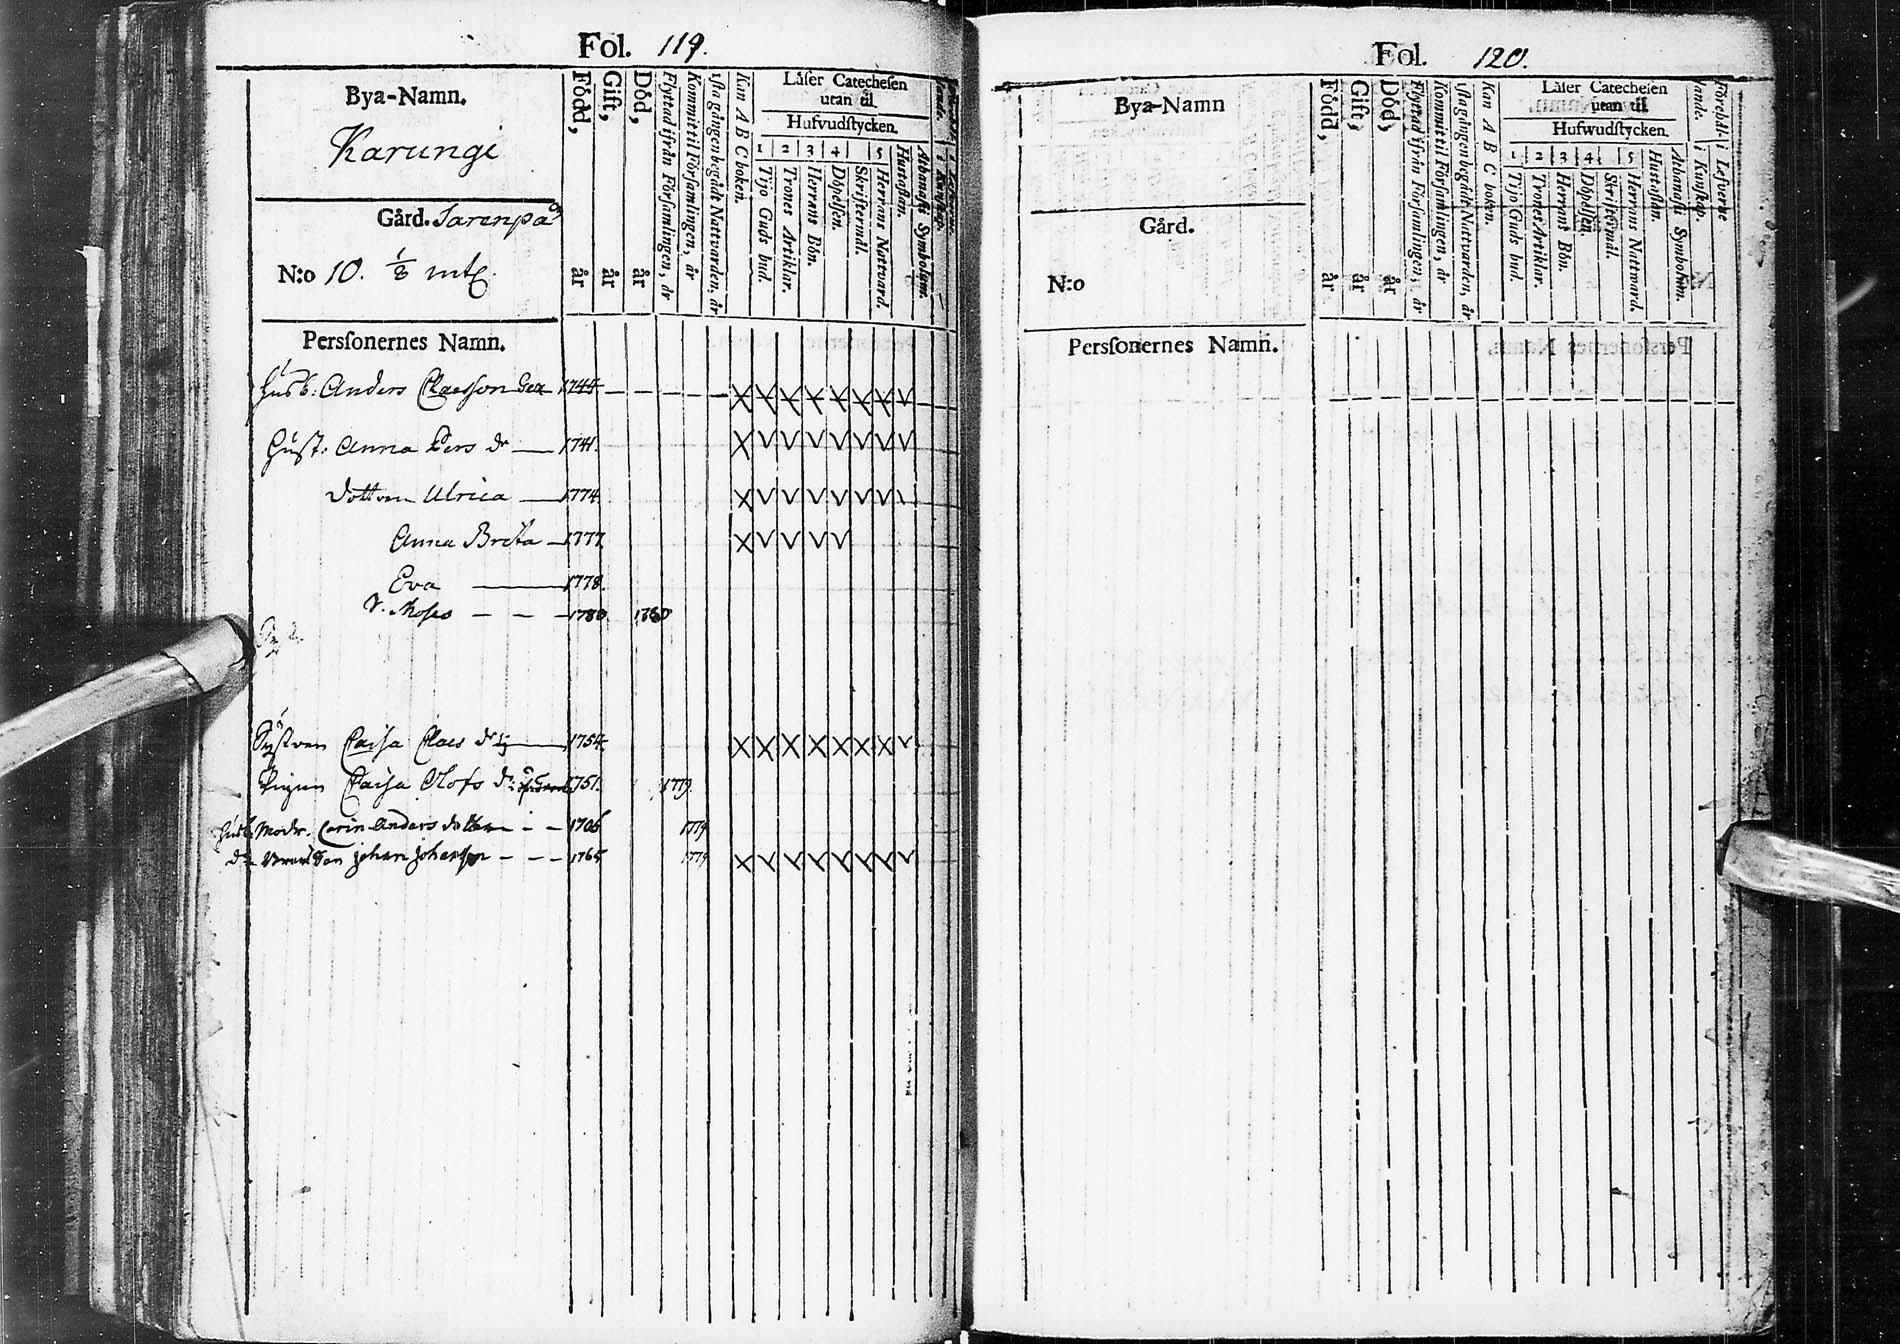 Fol. 119.
Bya-Namn.
Karungi
Gård. Sarenpå
N:o 10. 1/8 mtl.
Född, år
Gift, år
Död, år
Flyttad ifrån Församlingen, år
Kommit til Församlingen, år
1sta gången begådt Nattvarden, år
Kan A B C boken.
Läſer Catecheſen
utan til.
Hufvudſtycken.
1 Tijo Guds bud.
2 Trones Artiklar.
3 Herrans Bön.
4 Döpelſen.
Skriftermål.
5 Herrans Nattvard.
Huſtaflan.
Athanaſii Symbolum.
Perſonernes Namn.
Husb: Anders Claesson 1744
Hust: Anna Pers dr 1741.
Dottren Ulrica 1774.
Anna Brita 1777.
Eva 1778.
Moses 1780 1780
Systren Caisa Claes dr 1754.
Pigan Caisa Olofs dr 1751. 1779.
Husb: Modr. Carin Anders dotter 1706 1779
Son Johan Johansson 1765 1779
Fol. 120.
Bya-Namn
Gård.
N:o
Född, år
Gift, år
Död, år
Flyttad ifrån Förſamlingen, år
Kommit til Förſamlingen, år
1ſta gången begådt Nattvarden, år
Kan A B C boken.
Läſer Catecheſen
utan til.
Hufwudſtycken.
1 Tijo Guds bud.
2 Trones Artiklar.
3 Herrans Bön.
4 Döpelſen.
Skriftermål.
5 Herrans Nattvard.
Huſtaflan.
Athanaſii Symbolum.
Förehåll: i Lefverne
i Kunſkap.
Perſonernes Namn.